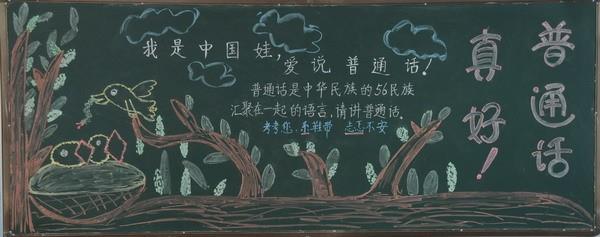 普通话
真好!
我是中国娃,
爱说普通话!
普通话是中华民族的56民族
汇聚在一起的语言,请讲普通话。
考考您.系鞋带 忐忑不安